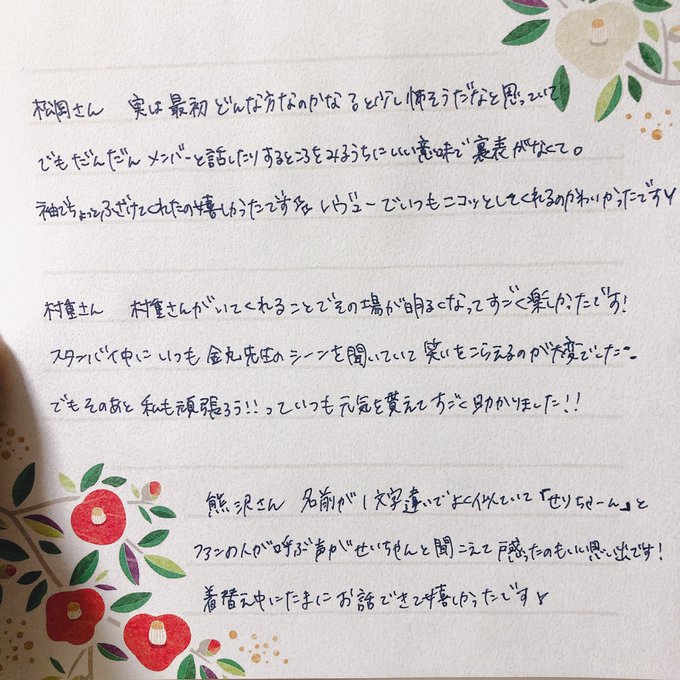 松岡さん 実は最初どんな方なのかな？と少し怖そうだなと思っていて
でもだんだんメンバーと話したりするところをみるうちにいい意味で裏表がなくて。
袖でちょっとふざけてくれたの嬉しかったです☆ レヴューでいつもニコッとしてくれるのかわいかったです
村重さん 村重さんがいてくれることでその場が明るくなってすごく楽しかったです!
スタンバイ中にいつも金丸先生のシーンを聞いていて笑いをこらえるのが大変でした
でもそのあと私も頑張ろう!!っていつも元気を貰えてすごく助かりました!!
熊沢さん 名前が1文字違いでよく似ていて「せりちゃーん」と
ファンの人が呼ぶ声がせいちゃんと聞こえて戸惑ったのもいい思い出です!
着替え中にたまにお話できて嬉しかったです